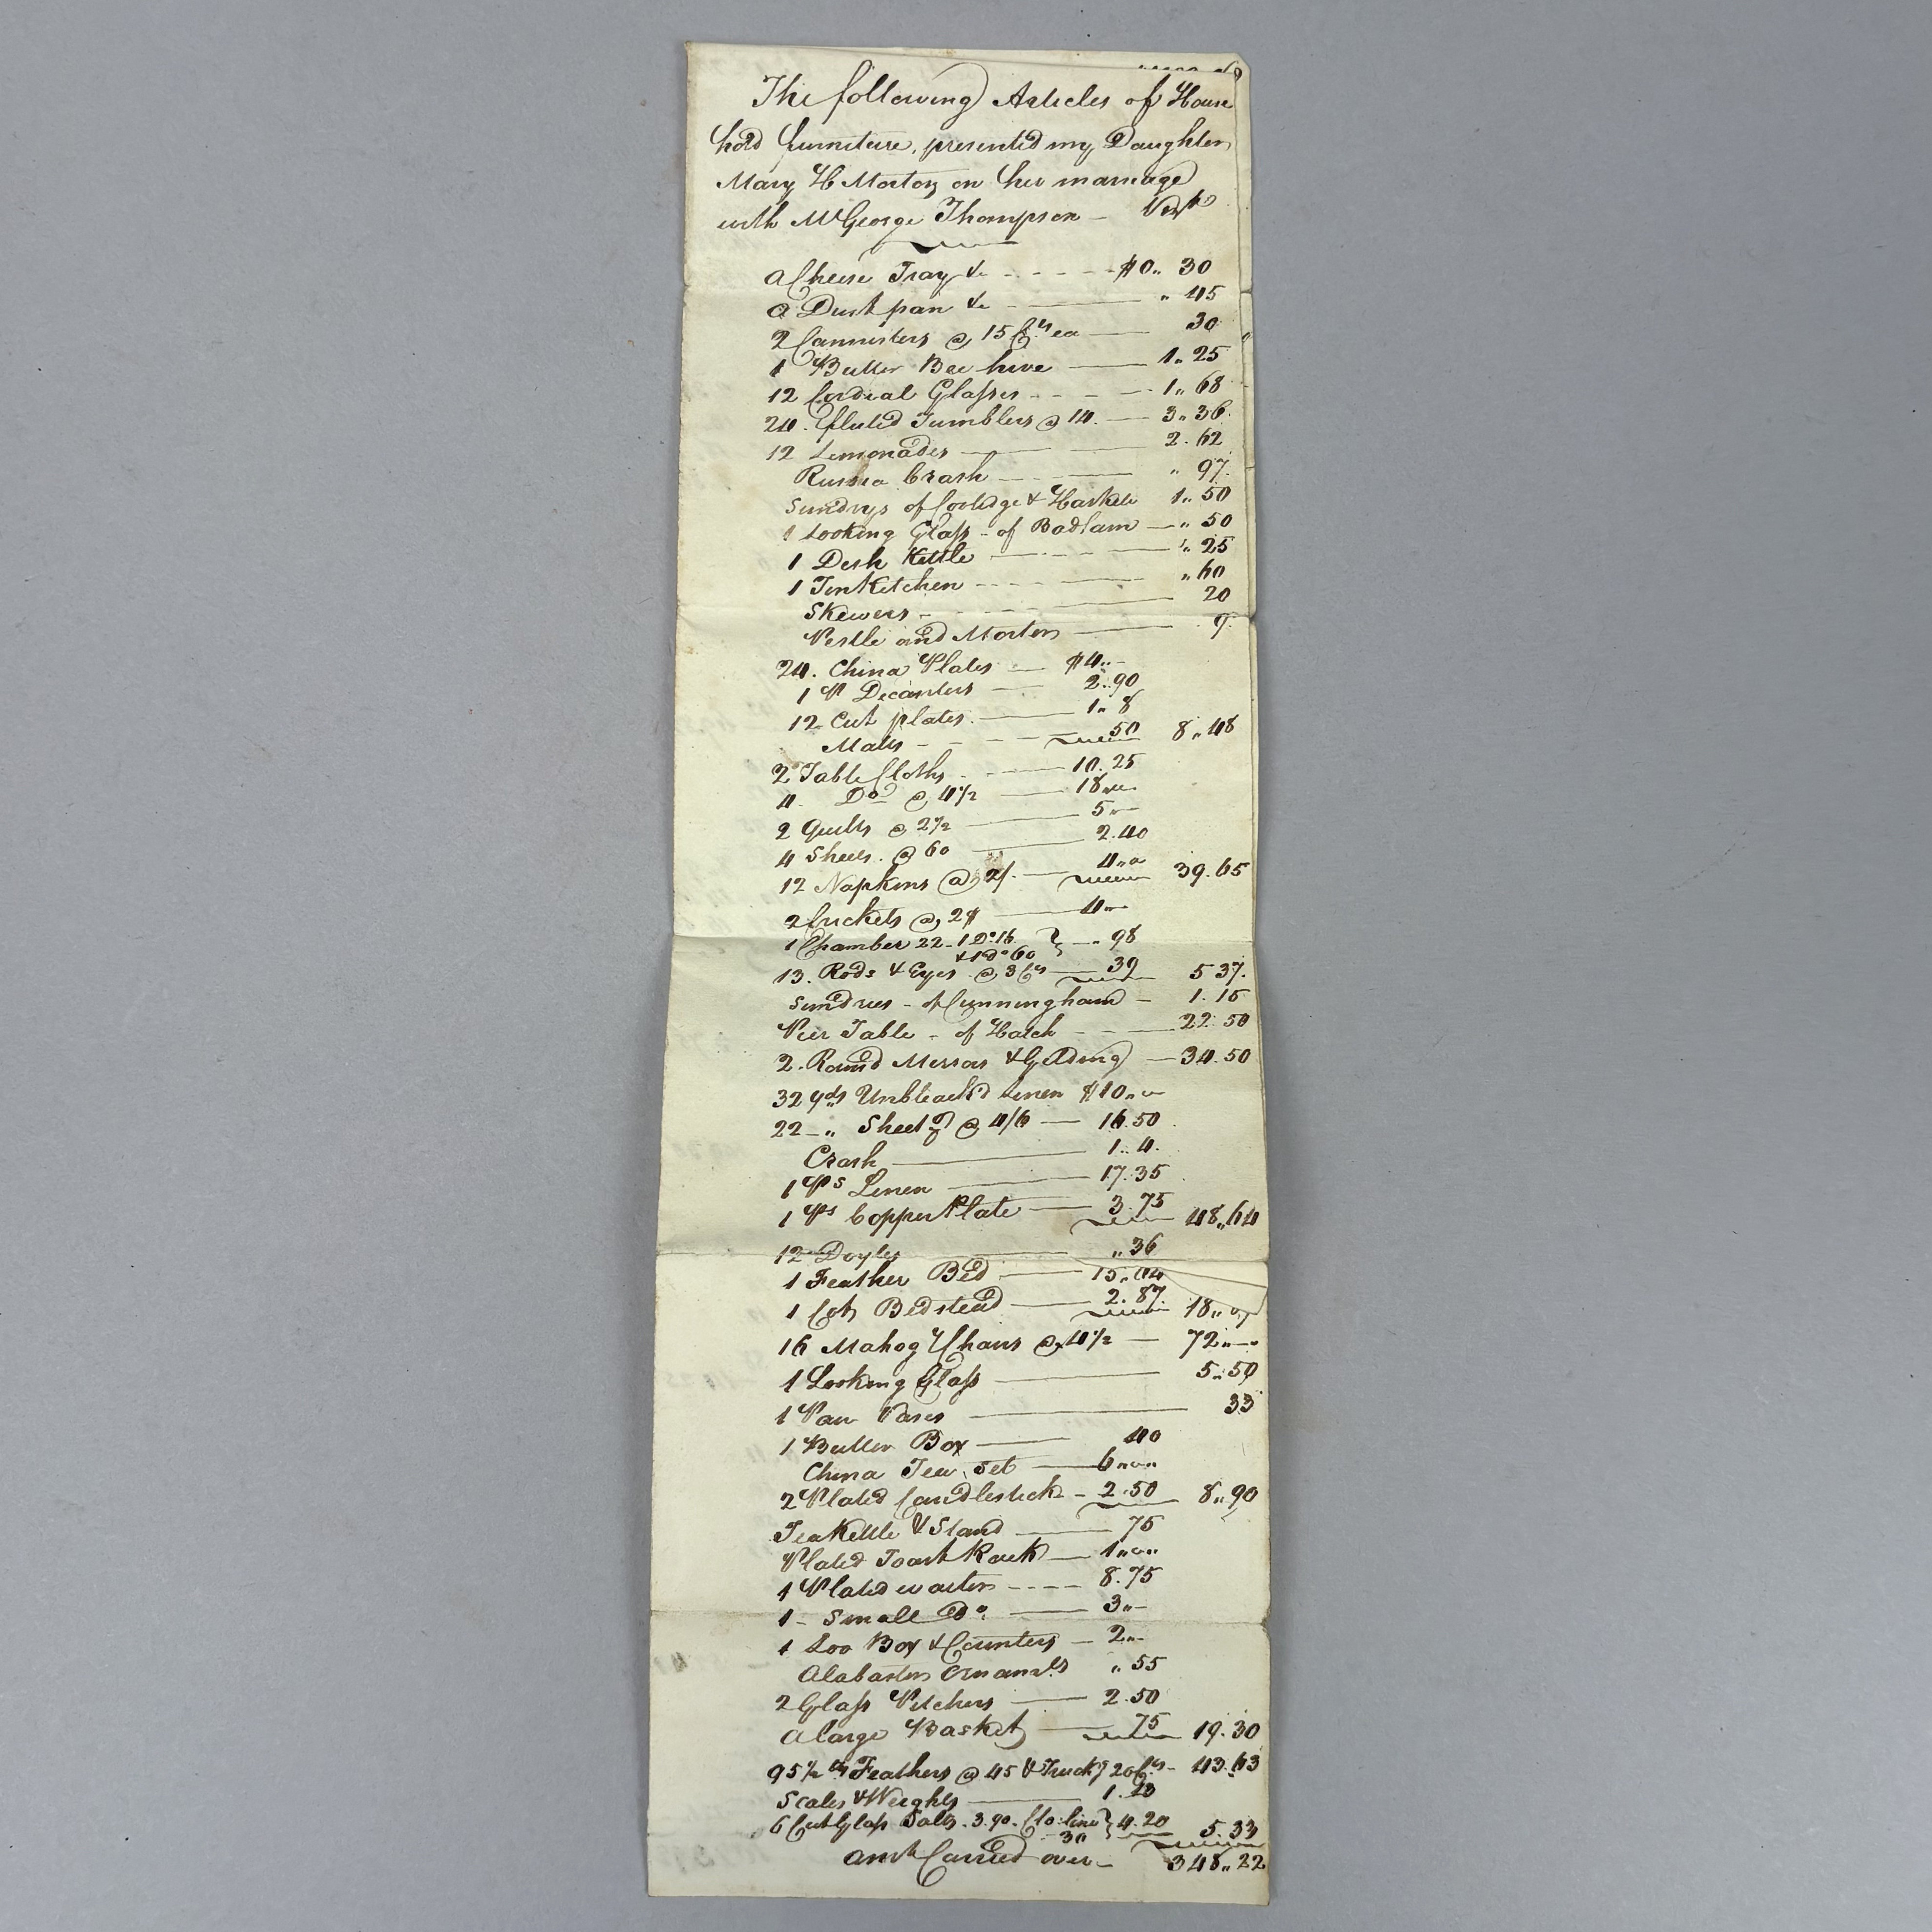 The following Articles of House
hold furniture, presented my Daughter
Mary H Morton on her marriage
with Mr George Thompson – Viz
a Cheese Tray &c - - - - - $0.. 30
a Dust pan &c - ——— " 45
2 Cannisters @ 15 Cts ea —— 30
1 Butter Bee hive —— 1.. 25
12 Cordial Glasses - - - - - 1.. 68
24. fluted Tumblers @ 14. —— 3.. 36.
12 Lemonades —— 2. 62
Russia Crash — " 97.
Sundrys of Coolidge & Haskell 1.. 50
1 Looking Glass - of Badlam — " 50
1 Dish Kettle — 1.. 25
1 Tin Kitchen - - - - — " 60
Skewers - — 20
Pestle and Mortar —— 9.
24. China Plates — $4..-
1 Pr Decanters — 2..90
12 Cut plates. —— 1.. 8
Matts - - - - 50 8.. 48
2 Table Cloths - —— 10. 25
4. Do @ 4½ —— 18..
2 Quilts @ 2½ —— 5..
4 Sheets. @ 60 —— 2.40
12 Napkins @ 2/. — 4.. 39.65
2 Crickets @ 2$ —— 4..
1 Chamber 22 - 1 Do 16 } - .. 98
& 1 do 60
13. Rods & Eyes @ 3 Cts — 39 5 37.
Sundries - of Cunningham - 1. 15
Pier Table - of Hatch - - — 22. 50
2. Round Mirrors & Gilding — 34. 50
32 yds Unbleach'd Linen $10..
22 – " Sheetg @ 4/6 — 16.50
Crash —— 1.. 4.
1 Ps Linen —— 17.35
1 Ps Copper Plate — 3.75 48..64
12 Doyles —— .. 36
1 Feather Bed —— 15..
1 Cot Bedstead — 2. 87. 18..
16 Mahogy Chairs @ 4½ — 72..—
1 Looking Glass —— 5..50
1 Pair Vases —— 33
1 Butter Box —— 40
China Tea Set —— 6..
2 Plated Candlesticks - 2.50 8..90
Tea Kettle & Stand —— 75
Plated Toast Rack — 1..
1 Plated waiter - - - - 8.75
1 - Small Do. —— 3..-
1 Loo Box & Counters — 2..-
Alabaster Ornamts .. 55
2 Glass Pitchers —— 2.50
a large Basket —— 75 19.30
95½ lb Feathers @ 45 & Truckg 20 Cts - 43.
Scales & Weights —— 1.
6 Cut Glass Salts. 3.90. Clo: line } 4.20 5.33
30
amt Carried over – 348..22